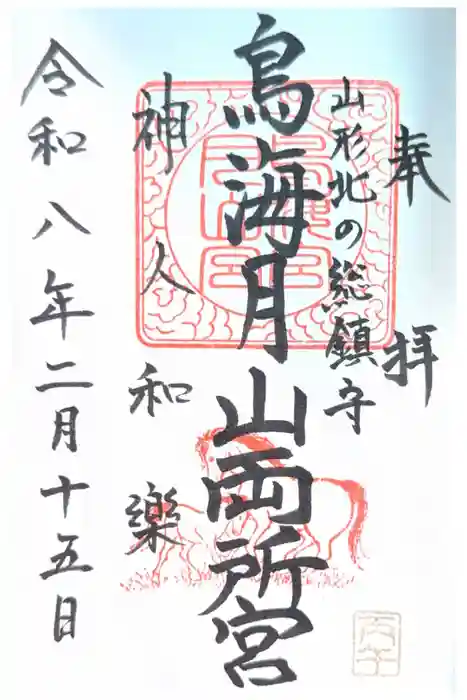 奉拝
山形北の総鎮守
鳥海月山両所宮
神人和樂
令和八年二月十五日
丙午